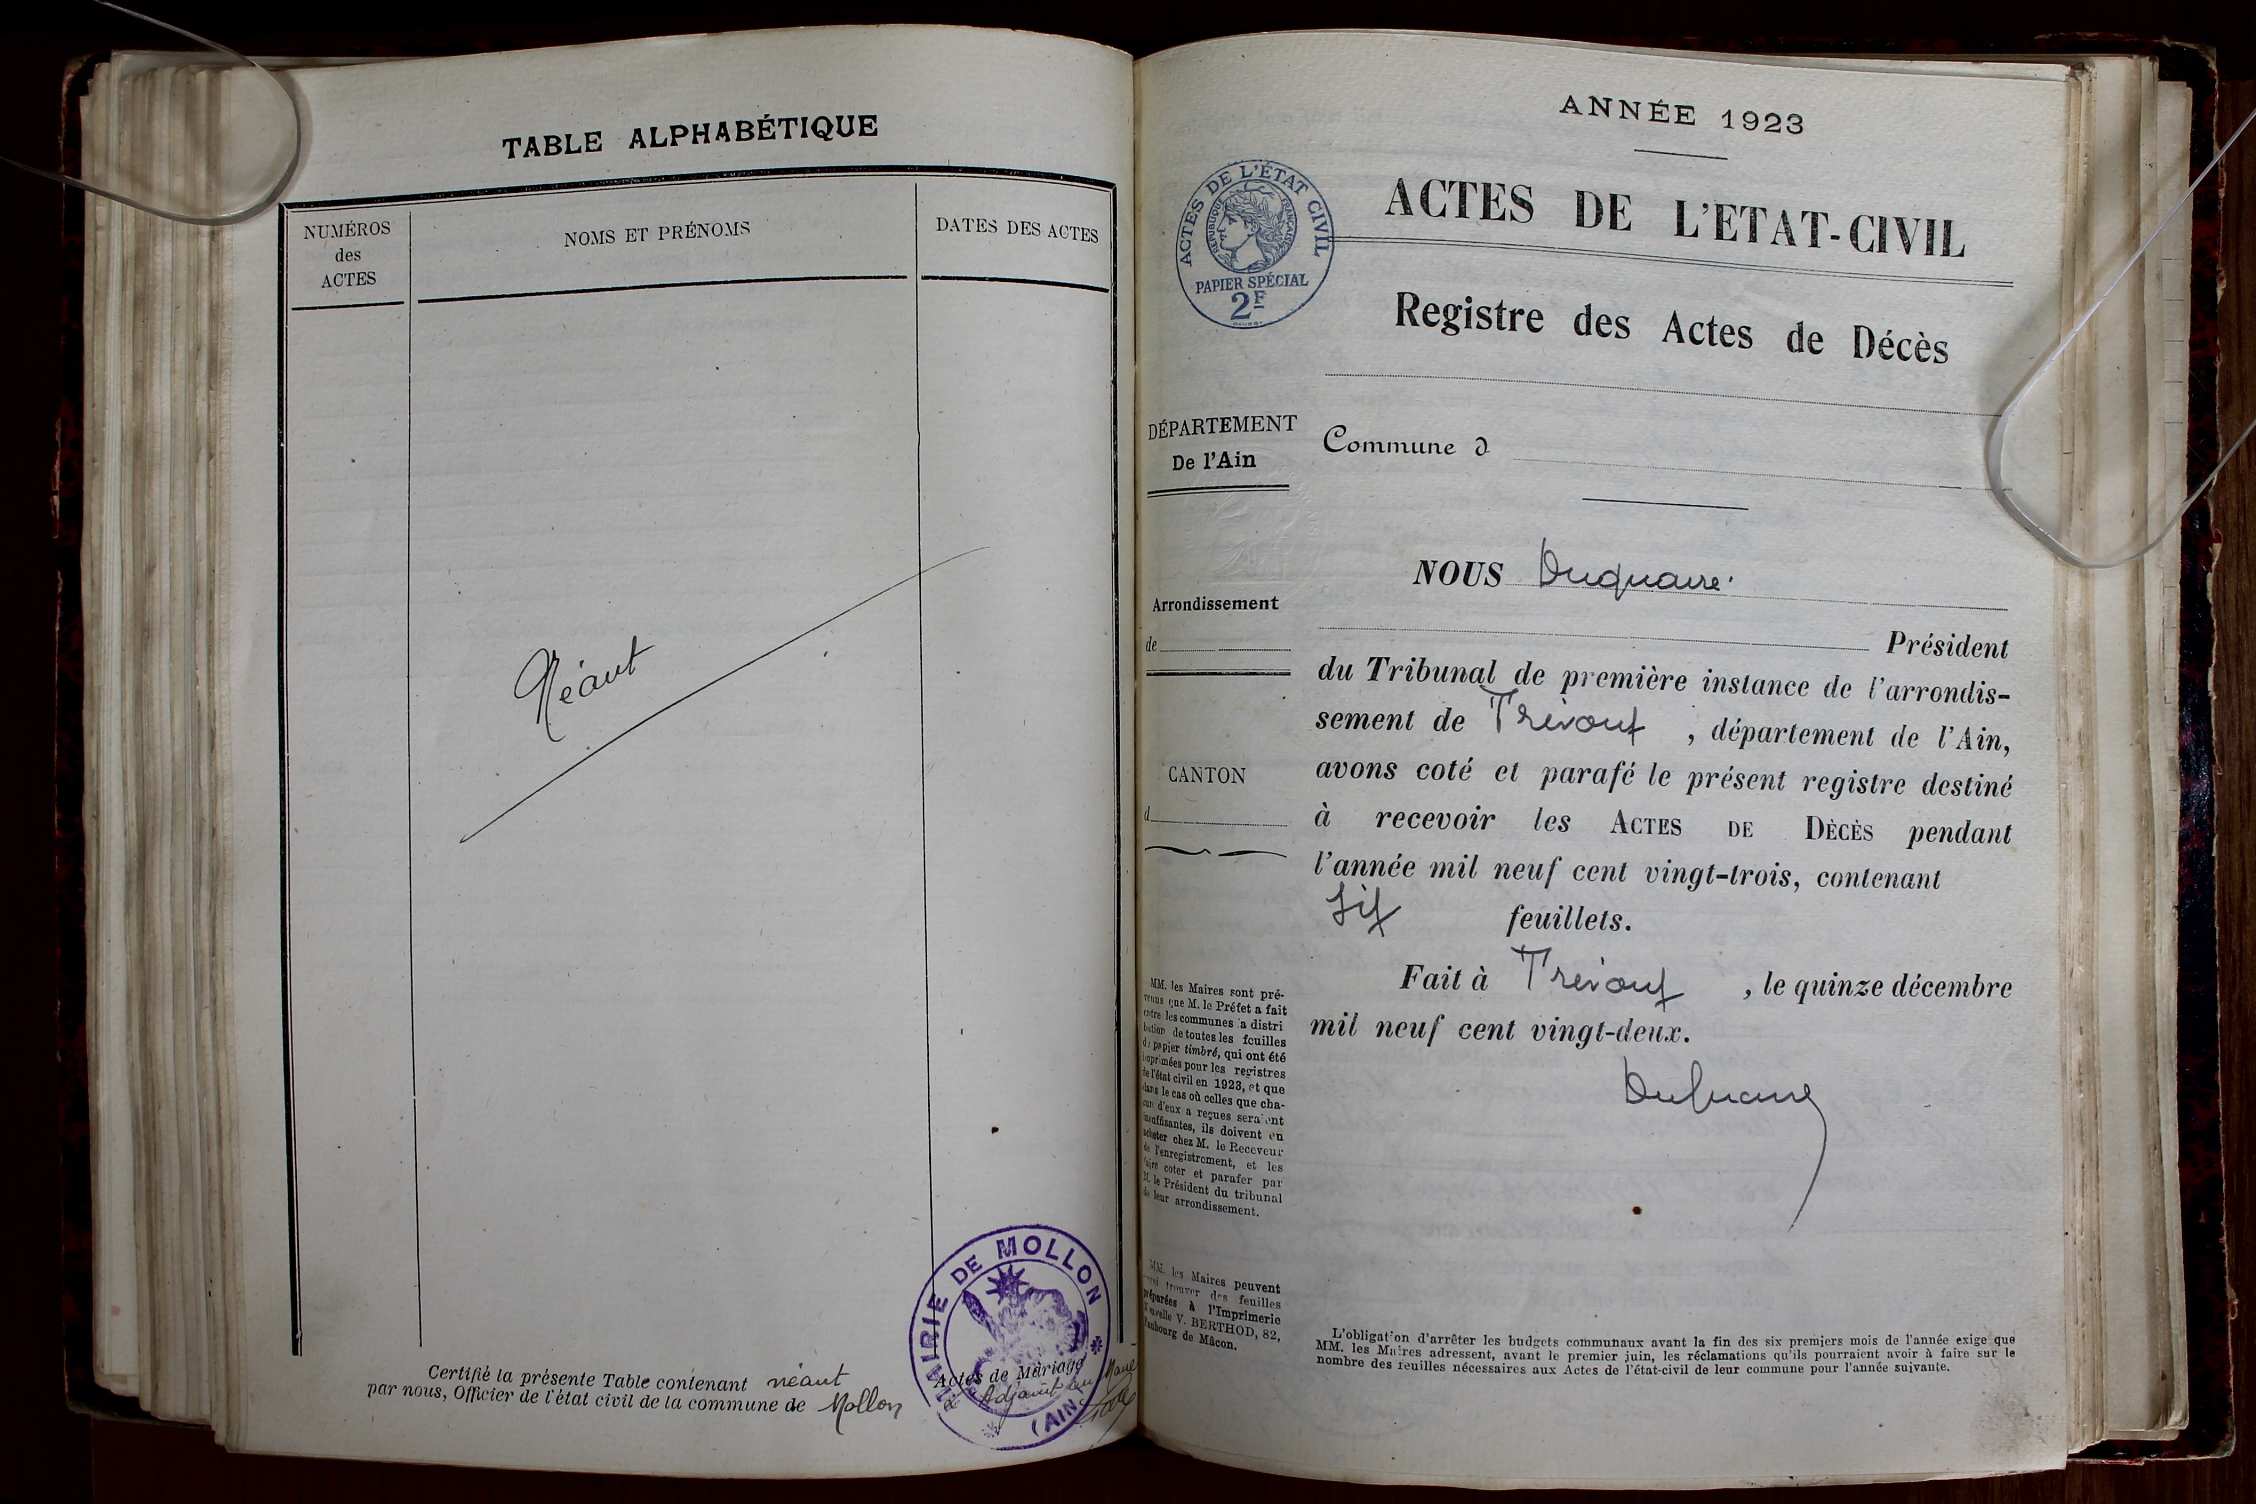 TABLE ALPHABÉTIQUE
NUMÉROS
des
ACTES
NOMS ET PRÉNOMS
DATES DES ACTES
Néant
Certifié la présente Table contenant néant Actes de Mariage
par nous, Officier de l'état civil de la commune de Mollon Adjoint
MAIRIE DE MOLLON
(AIN)
ANNÉE 1923
ACTES DE L'ÉTAT CIVIL
RÉPUBLIQUE FRANÇAISE
PAPIER SPÉCIAL
2F
ACTES DE L'ETAT-CIVIL
Registre des Actes de Décès
DÉPARTEMENT
De l'Ain
Commune d
Arrondissement
de
CANTON
d
NOUS Duquaire
Président
du Tribunal de première instance de l'arrondis-
sement de Trévoux, département de l'Ain,
avons coté et parafé le présent registre destiné
à recevoir les ACTES DE DÈCÈS pendant
l'année mil neuf cent vingt-trois, contenant
six feuillets.
Fait à Trévoux, le quinze décembre
mil neuf cent vingt-deux.
Duquaire
MM. les Maires sont pré-
venus que M. le Préfet a fait
entre les communes a distri
bution de toutes les feuilles
du papier timbré, qui ont été
imprimées pour les registres
de l'état civil en 1923, et que
dans le cas où celles que cha-
cun d'eux a reçues seraient
insuffisantes, ils doivent en
acheter chez M. le Receveur
de l'enregistrement, et les
faire coter et parafer par
M. le Président du tribunal
de leur arrondissement.
MM. les Maires peuvent
aussi trouver des feuilles
préparées à l'Imprimerie
Nouvelle V. BERTHOD, 82,
Faubourg de Mâcon.
L'obligation d'arrêter les budgets communaux avant la fin des six premiers mois de l'année exige que
MM. les Maires adressent, avant le premier juin, les réclamations qu'ils pourraient avoir à faire sur le
nombre des feuilles nécessaires aux Actes de l'état-civil de leur commune pour l'année suivante.